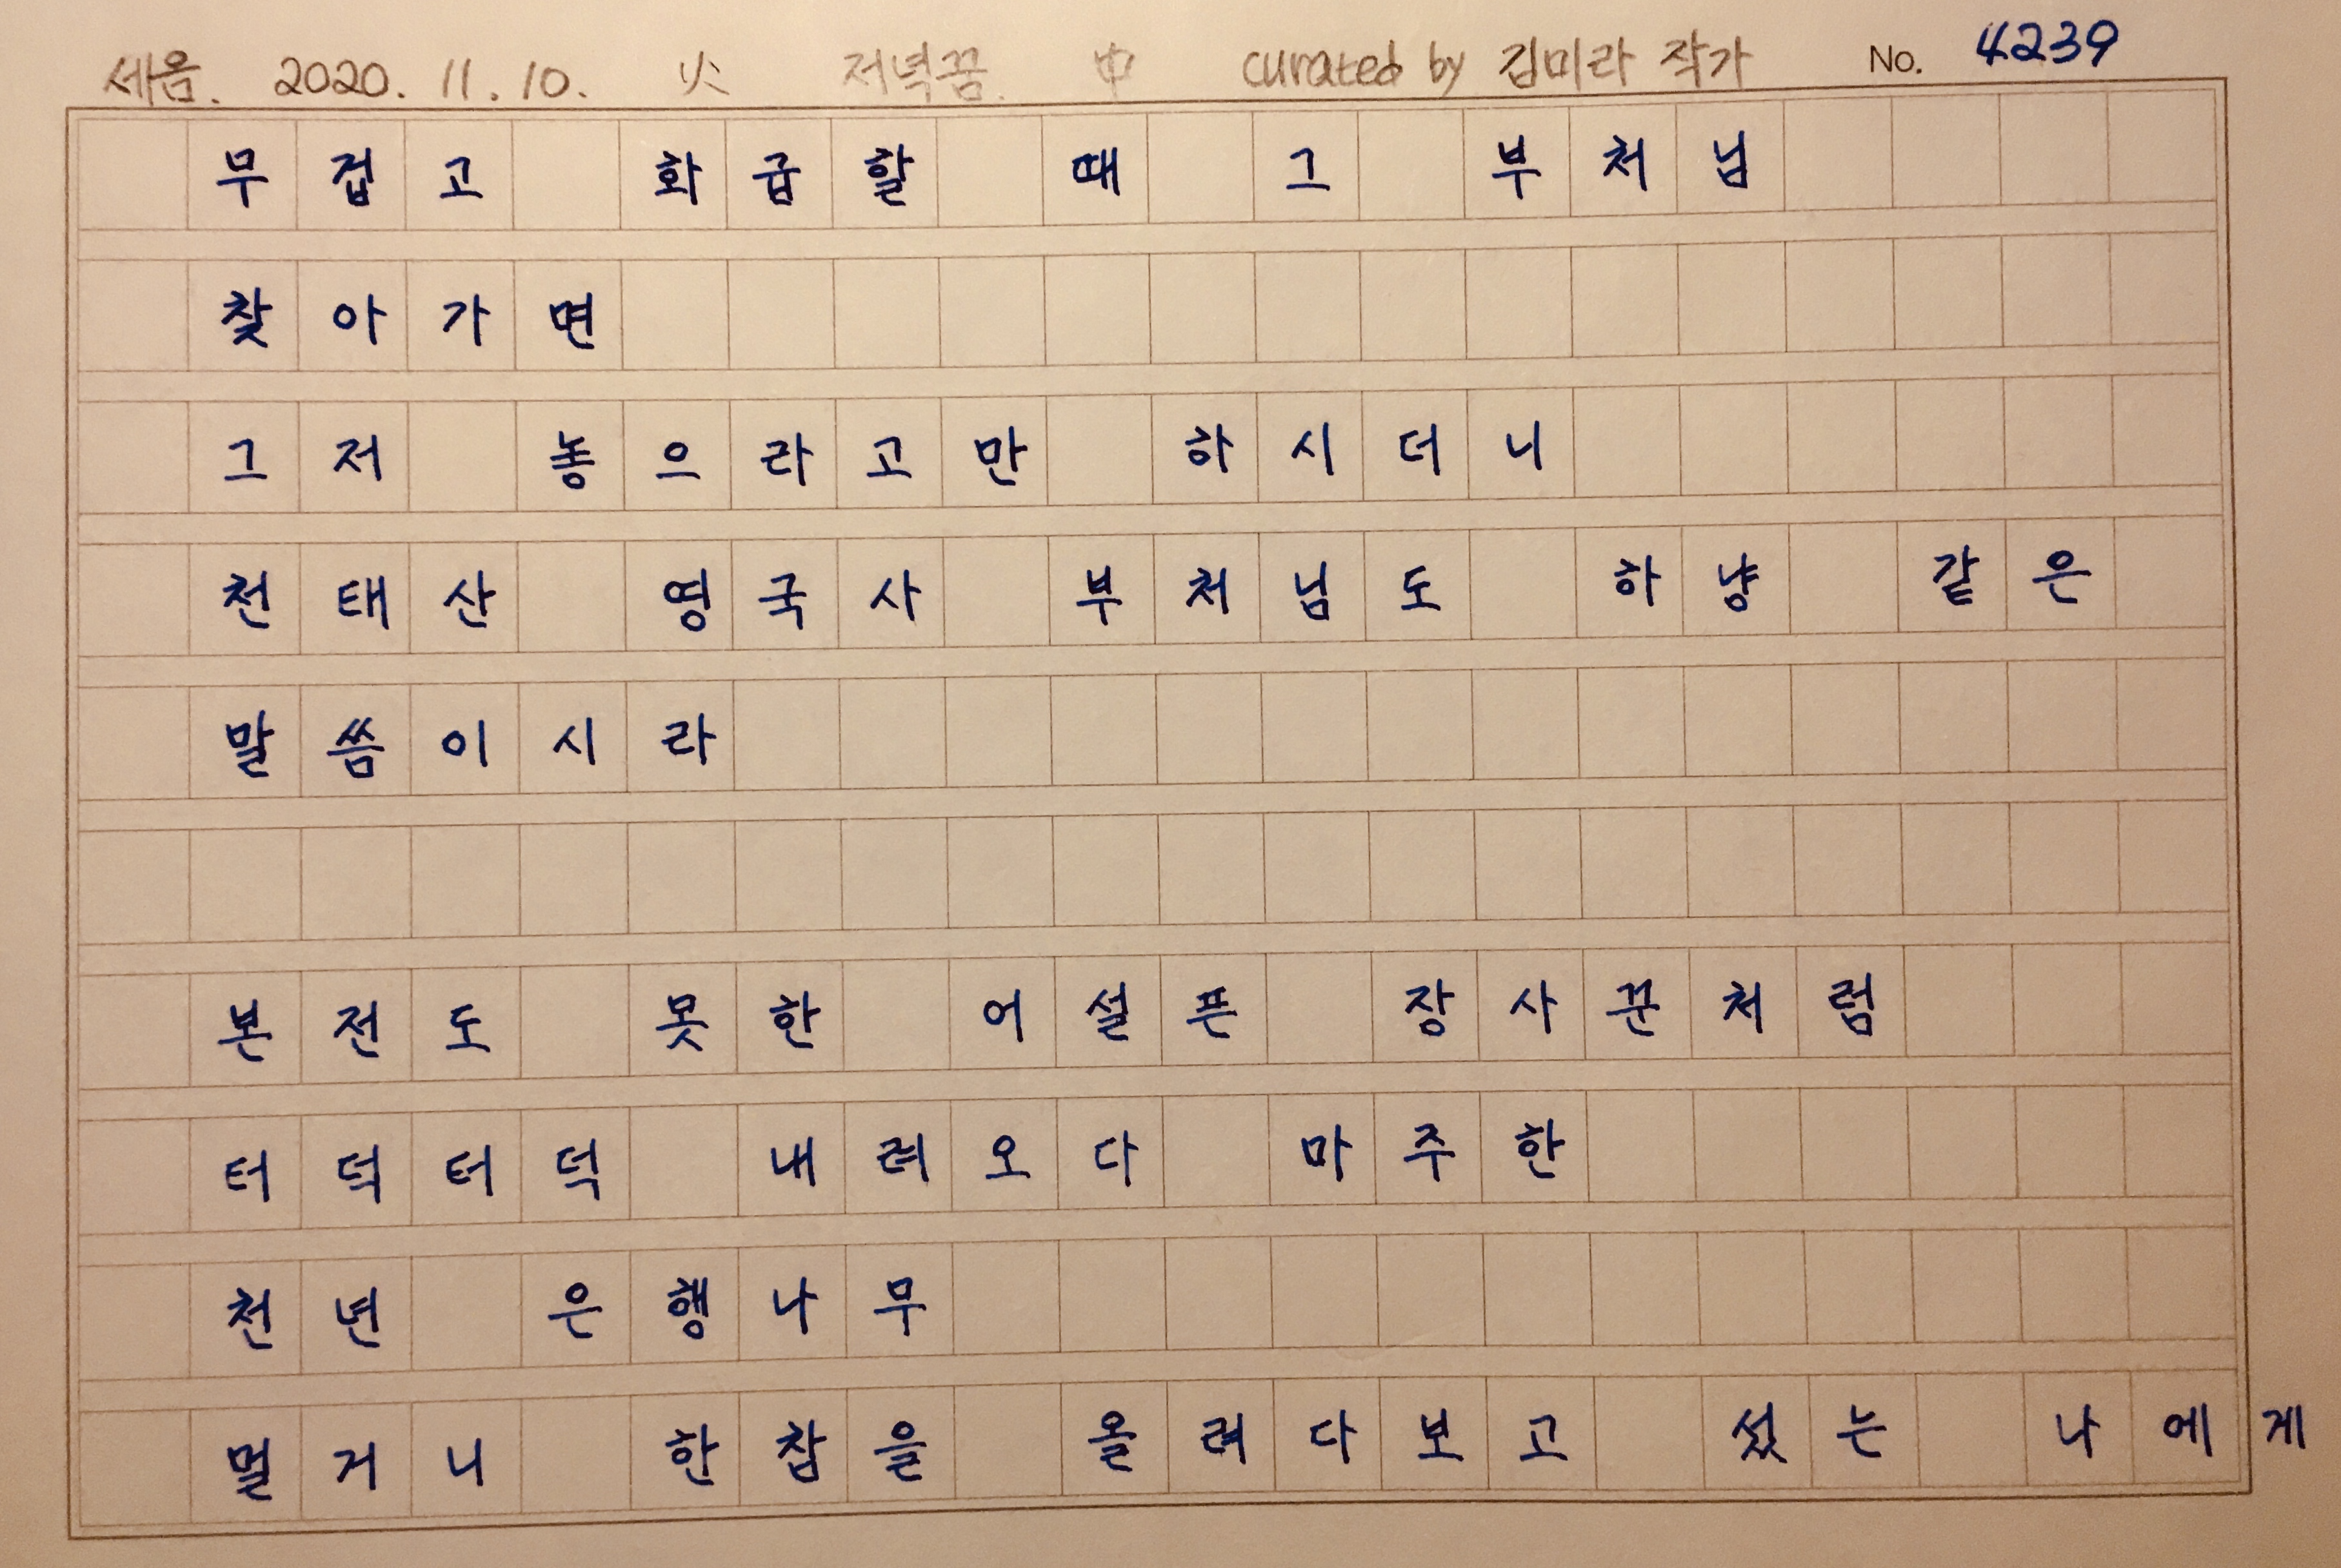 세음. 2020. 11. 10. 火 저녁꿈. 中 curated by 김미라 작가 No. 4239
무겁고 화급할 때 그 부처님
찾아가면
그저 놓으라고만 하시더니
천태산 영국사 부처님도 하냥 같은
말씀이시라
본전도 못한 어설픈 장사꾼처럼
터덕터덕 내려오다 마주한
천년 은행나무
멀거니 한참을 올려다보고 섰는 나에게